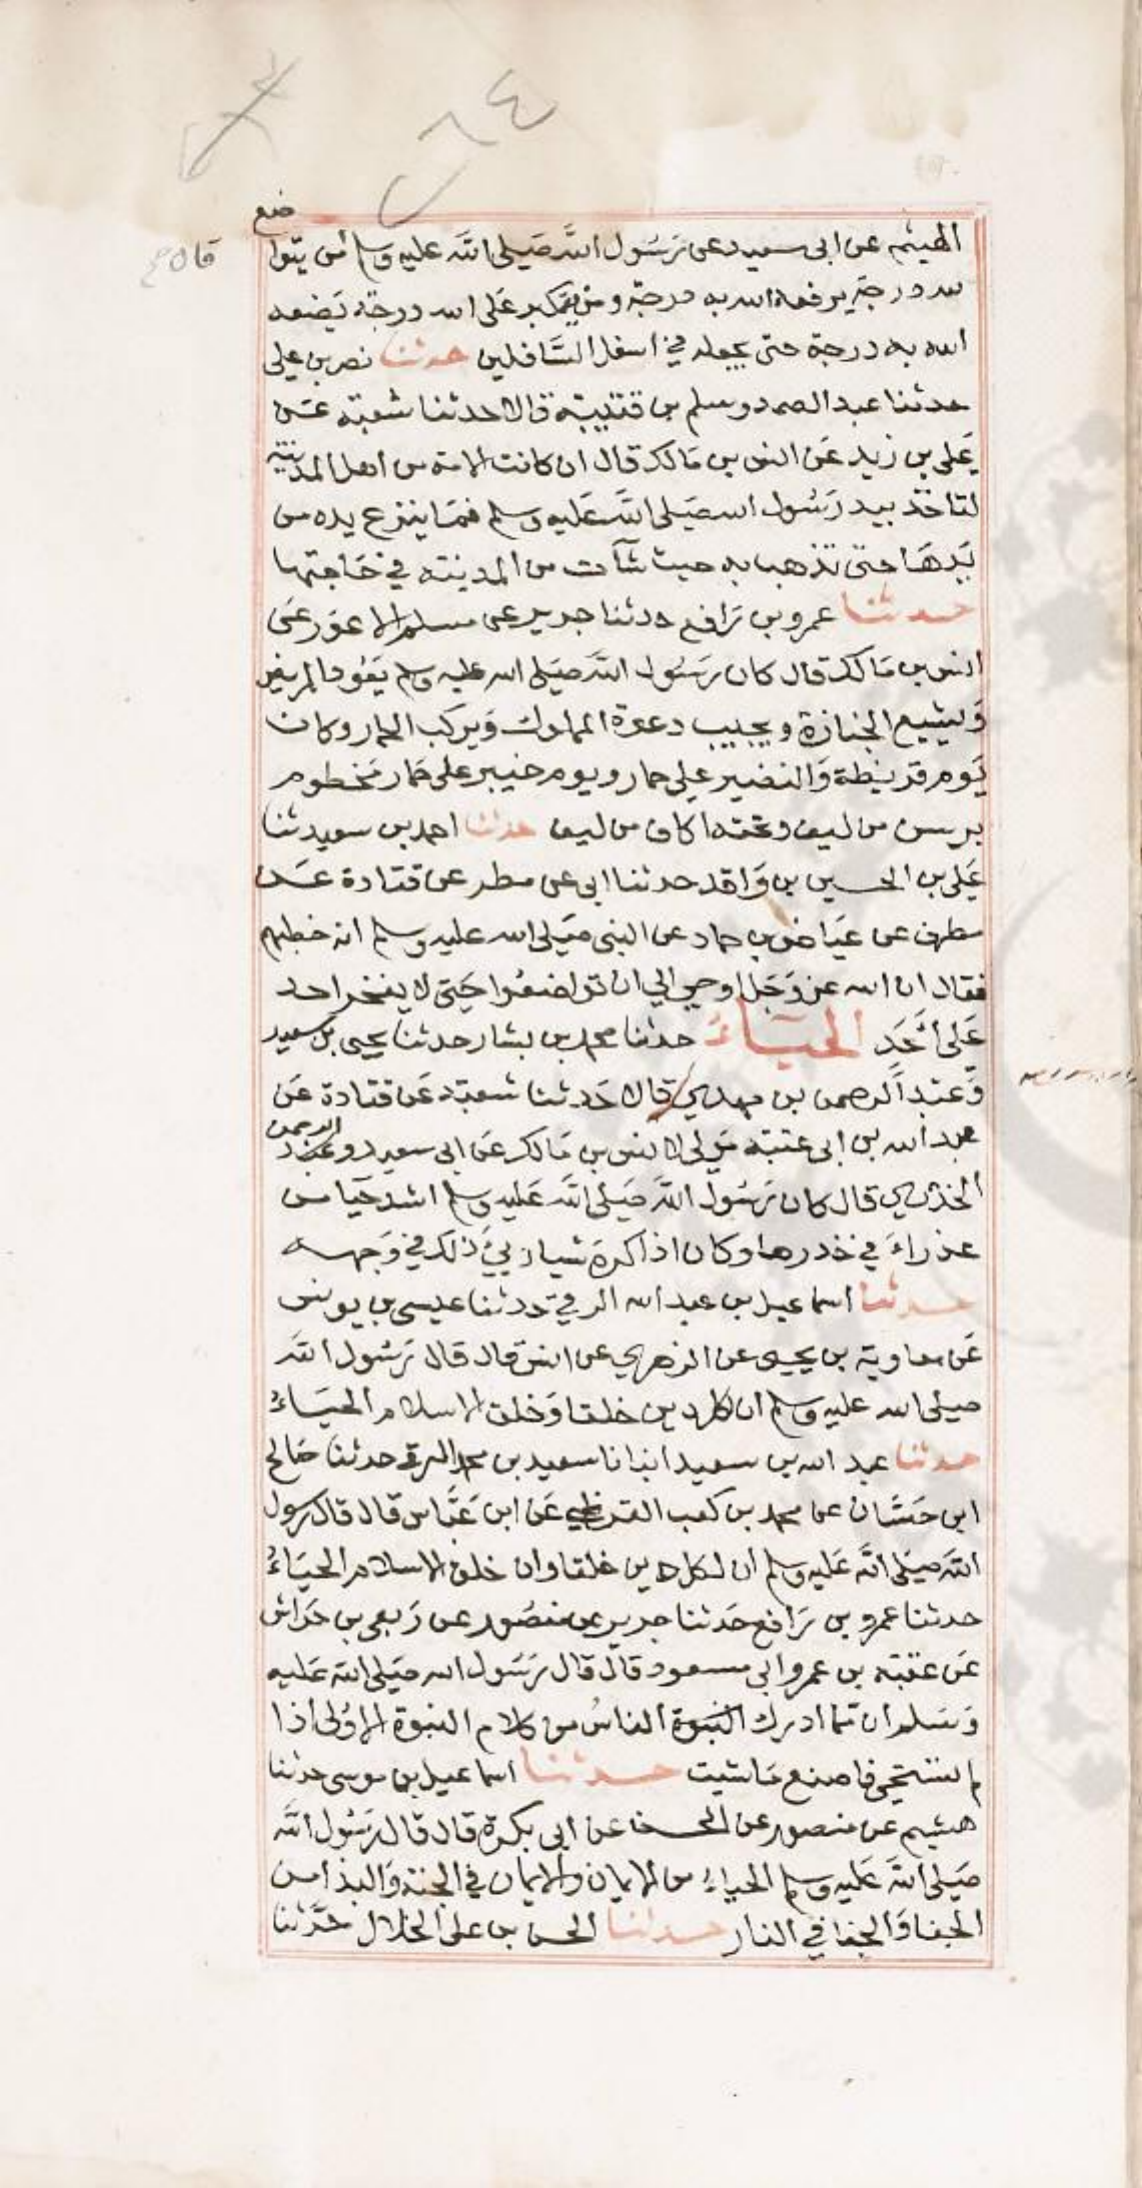 ضع
قال صح
الهيثم عن ابى سعيد عن رَسُول اللَّه صَلى اللَّه عليه وسلم من يتوا
لله درجة يرفعه الله به درجة ومن يتكبر عَلى الله درجة يَضعه
الله به درجة حتى يجعله في اسفل السَّافلين حدثنا نصر بن علي
حدثنا عبد الصمد وسلم بن قتيبة قالا حدثنا شعبة عَن
عَلى بن زيد عَن انس بن مَالك قال ان كانت الامة من اهل المدينة
لتاخذ بيد رَسُول الله صَلى اللَّه عَليه وسلم فمَا ينزع يده من
يَدهَا حتى تذهب به حيث شآت من المدينة في حَاجتها
حدثنا عمرو بن رَافع حدثنا جرير عن مسلم الاعوَر عَن
انس بن مَالك قال كان رَسُول اللَّه صَلى الله عليه وسلم يَعُود المريض
وَيشيع الجنازة ويجيب دعوة المملوك وَيركب الحمار وكان
يَوم قريظة وَالنضير على حمار ويوم خيبر على حمَار مَخطوم
برسن من ليف وتحته اكاف من ليف حدثنا احمد بن سعيد ثنا
عَلى بن الحسين بن وَاقد حدثنا ابى عن مطر عن قتادة عَن
مطرف عن عيَاض بن حماد عن النبى صَلى الله عليه وسلم انه خطبهم
فقال ان الله عز وَجَل اوحى الي ان تواضعُوا حَتى لا يفخر احد
عَلى أَحَد الحيَاءُ حدثنا محمد بن بشار حدثنا يحيى بن سعيد
وَعَبد الرحمن بن مهدي قالا حَدثنا شعبة عَن قتادة عَن
عبد الله بن ابى عتبة مَولى لانس بن مَالك عَن ابى سعيد وعبد الرحمن
الخدري قال كان رَسُول اللَّه صَلى اللَّه عَليه وسلم اشد حَيا من
عذراءَ في خدرها وكان اذا كرهَ شيا رَيئَ ذلك في وَجهه
حدثنا اسماعيل بن عبد الله الرقي حدثنا عيسى بن يونس
عَن معاوية بن يحيى عن الزهري عن انس قال قال رَسُول اللَّه
صَلى الله عليه وسلم ان لكل دين خلقا وَخلق الاسلام الحيَاءُ
حدثنا عبد الله بن سعيد انبانا سعيد بن محمد الورق حدثنا صَالح
ابن حَسَّان عن محمد بن كعب القرظي عَن ابن عَبَّاس قال قال رسول
اللَّه صَلى اللَّه عَليه وسلم ان لكل دين خلقا وان خلق الاسلام الحيَاءُ
حدثنا عمرو بن رَافع حَدثنا جرير عن منصُور عن رَبعى بن حَراش
عَن عقبة بن عمرو ابى مسعود قال قال رَسَول الله صَلى اللَّه عَليه
وَسَلم ان مما ادرك النبوة الناسُ من كلام النبوة الاوُلى اذا
لم تستحى فاصنع مَا شيت حدثنا اسماعيل بن موسى حدثنا
هشيم عن منصور عن الحسن عن ابى بكرة قال قال رَسُول اللَّه
صَلى اللَّه عَليه وسلم الحياءُ من الايمان والايمان في الجنة وَالبذا من
الجفا وَالجفا في النار حدثنا الحسن بن على الخلال حَدَّثنا